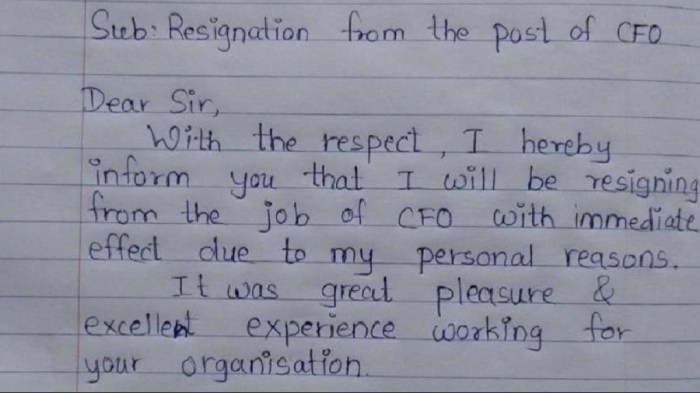 Sub: Resignation from the post of CFO
Dear Sir,
With the respect, I hereby
inform you that I will be resigning
from the job of CFO with immediate
effect due to my personal reasons.
It was great pleasure &
excellent experience working for
your organisation.